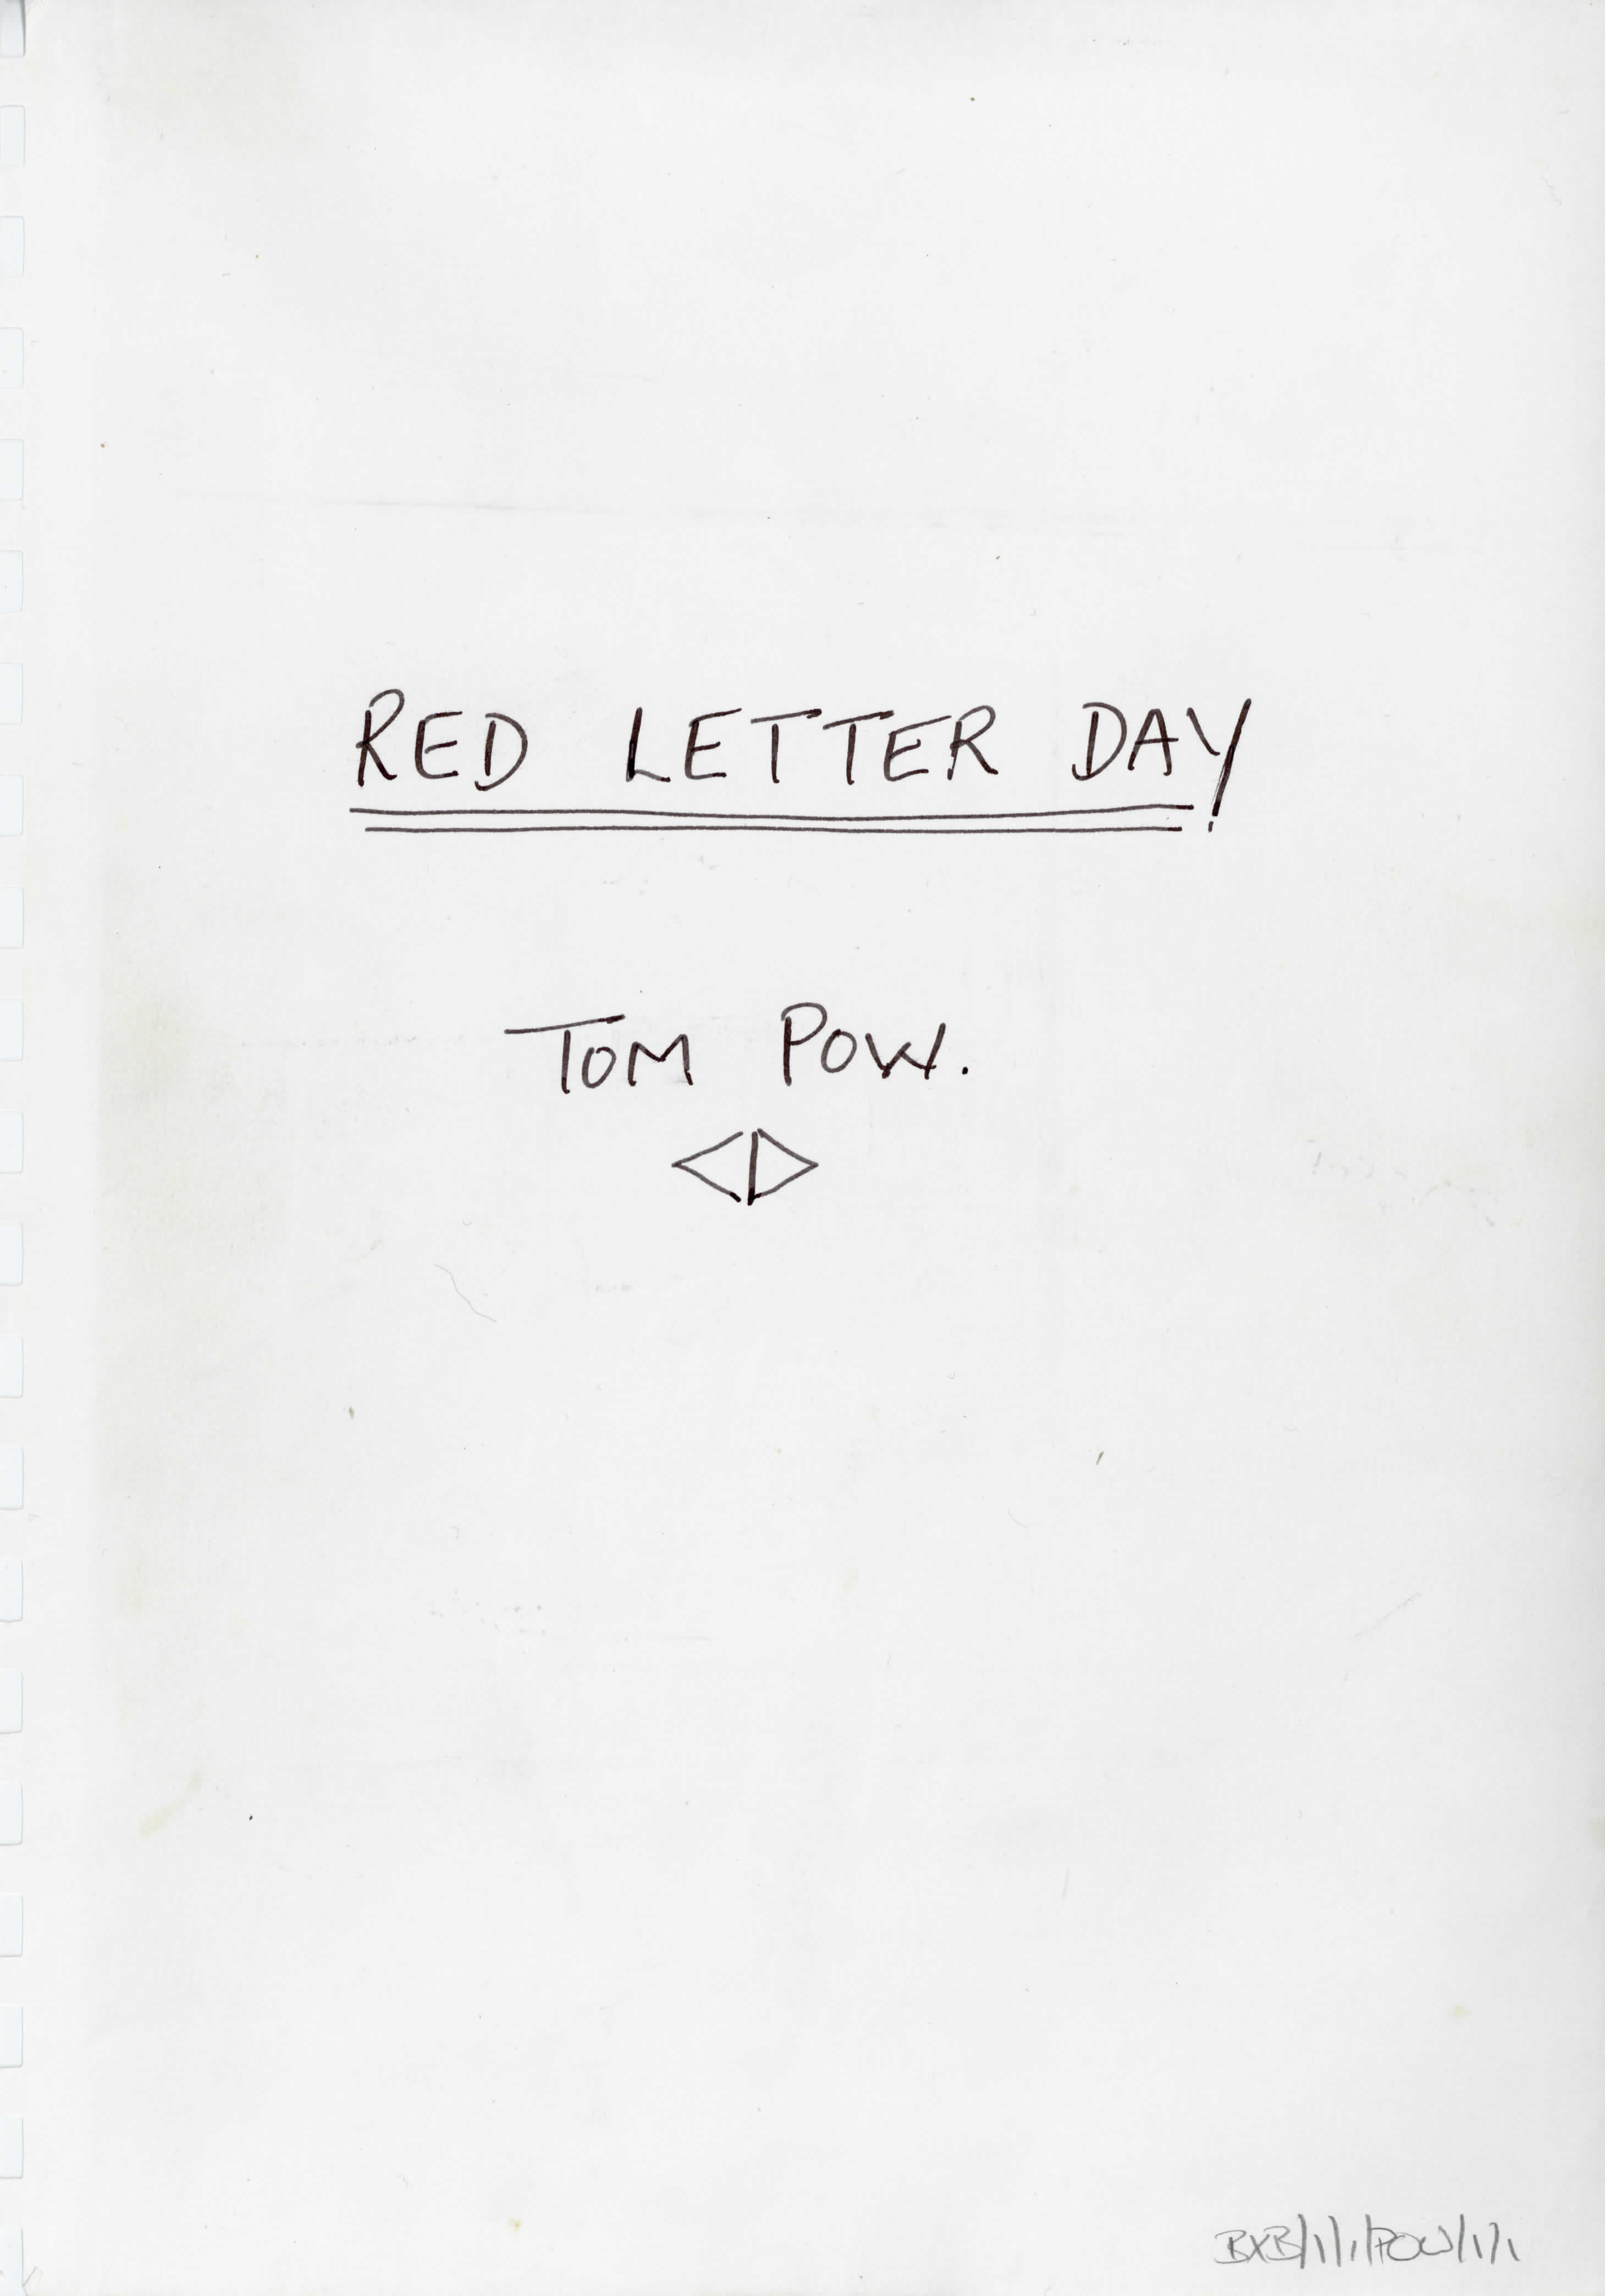 RED LETTER DAY
TOM POW.
BXB/1/1/POW/1/1